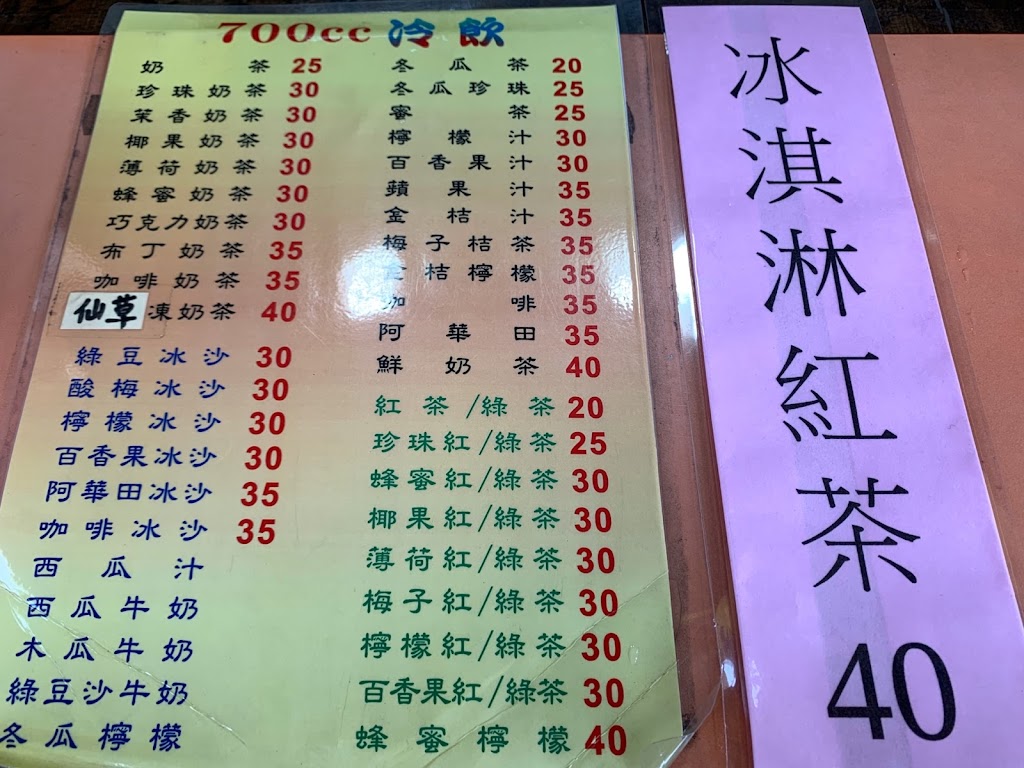 700cc 冷飲
奶茶 25
珍珠奶茶 30
茉香奶茶 30
椰果奶茶 30
薄荷奶茶 30
蜂蜜奶茶 30
巧克力奶茶 30
布丁奶茶 35
咖啡奶茶 35
仙草凍奶茶 40
綠豆冰沙 30
酸梅冰沙 30
檸檬冰沙 30
百香果冰沙 30
阿華田冰沙 35
咖啡冰沙 35
西瓜汁
西瓜牛奶
木瓜牛奶
綠豆沙牛奶
冬瓜檸檬
冬瓜茶 20
冬瓜珍珠 25
蜜茶 25
檸檬汁 30
百香果汁 30
蘋果汁 35
金桔汁 35
梅子桔茶 35
金桔檸檬 35
咖啡 35
阿華田 35
鮮奶茶 40
紅茶/綠茶 20
珍珠紅/綠茶 25
蜂蜜紅/綠茶 30
椰果紅/綠茶 30
薄荷紅/綠茶 30
梅子紅/綠茶 30
檸檬紅/綠茶 30
百香果紅/綠茶 30
蜂蜜檸檬 40
冰淇淋紅茶 40